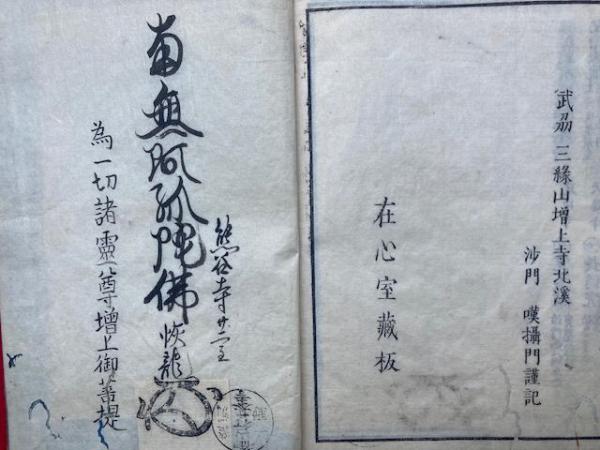 武刕三縁山增上寺北溪
沙門 嘆攝門謹記
在心室藏板
熊谷寺廿二主
南無阿弥陀佛
恢龍
為一切諸靈尊增上御菩提